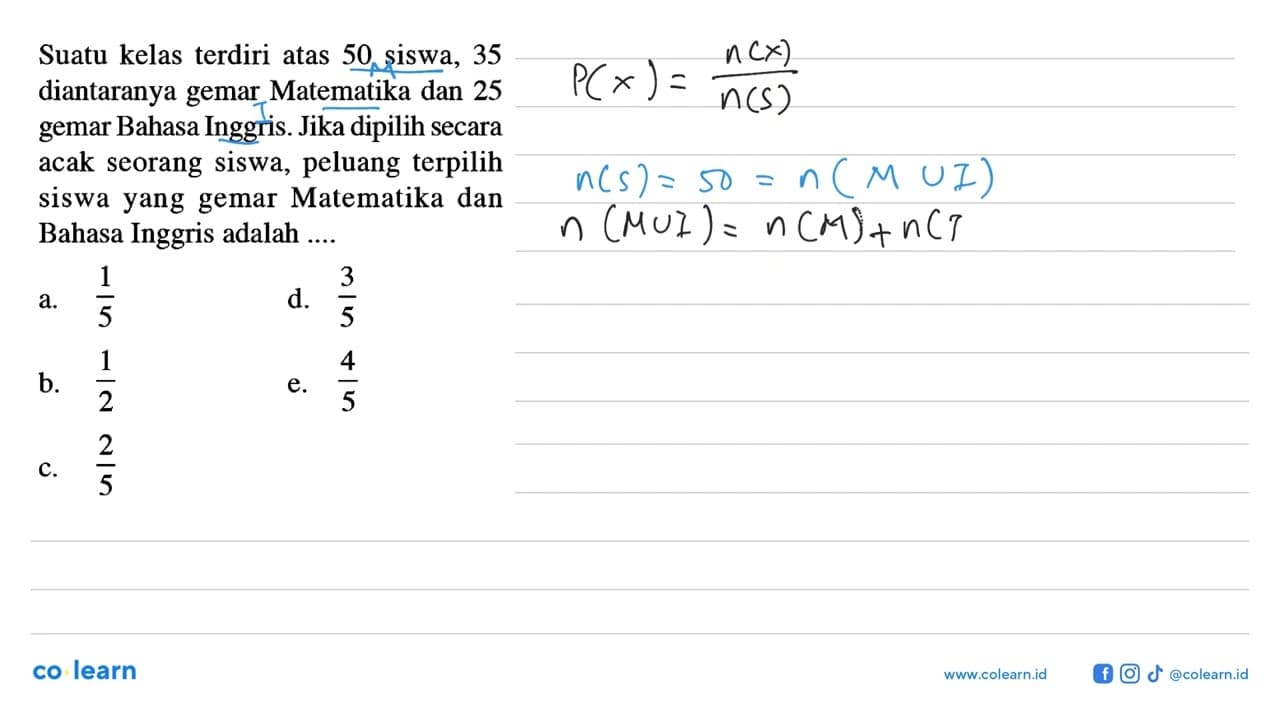 Suatu kelas terdiri atas 50 siswa, 35
M
diantaranya gemar Matematika dan 25
I
gemar Bahasa Inggris. Jika dipilih secara
acak seorang siswa, peluang terpilih
siswa yang gemar Matematika dan
Bahasa Inggris adalah ....
a. 1/5
d. 3/5
b. 1/2
e. 4/5
c. 2/5
P(x) = n(x)/n(S)
n(S) = 50 = n(M ∪ I)
n(M∪I) = n(M) + n(
co learn
www.colearn.id
@colearn.id